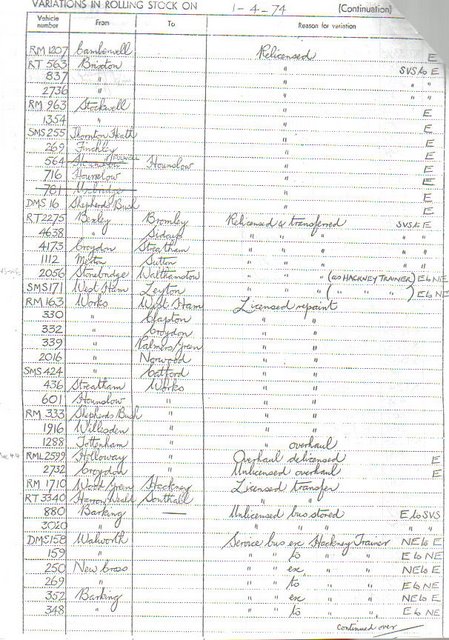 VARIATIONS IN ROLLING STOCK ON 1-4-74 (Continuation)
Vehicle number From To Reason for variation
RM 1207 Camberwell Relicensed E
RT 563 Brixton " SVS to E
837 " " " "
2736 " " " "
RM 963 Stockwell " E
1354 " " E
SMS 255 Thornton Heath " E
269 Finchley " E
564 Hounslow " E
716 Hounslow " E
761 Uxbridge " E
DMS 16 Shepherds Bush " E
RT 2275 Bexley Bromley Relicensed & transferred SVS to E
4638 " Sidcup " " " " "
4173 Croydon Streatham " " " " "
1112 Merton Sutton " " " " "
2056 Stonebridge Walthamstow " " " (as HACKNEY TRAINER) E to NE
SMS 171 West Ham Leyton " " " ( " " " ) E to NE
RM 163 Works West Ham Licensed repaint
330 " Clapton " "
332 " Croydon " "
339 " Palmers Green " "
2016 " Norwood " "
SMS 424 " Catford " "
436 Streatham Works " "
601 Hounslow " " "
RM 333 Shepherds Bush " " "
1916 Willesden " " "
1288 Tottenham " " overhaul
RML 2599 Holloway " Overhaul delicensed E
2732 Croydon " Unlicensed overhaul E
RM 1710 Wood Green Hackney Licensed transfer
RT 3340 Harrow Weald Southall " "
880 Barking Unlicensed bus stored E to SVS
3020 " " " " " " "
DMS 158 Walworth Service bus exc Hackney Trainer NE to E
159 " " " to " " E to NE
250 New Cross " " exc " " NE to E
269 " " " to " " E to NE
352 Barking " " exc " " NE to E
348 " " " to " " E to NE
continued over